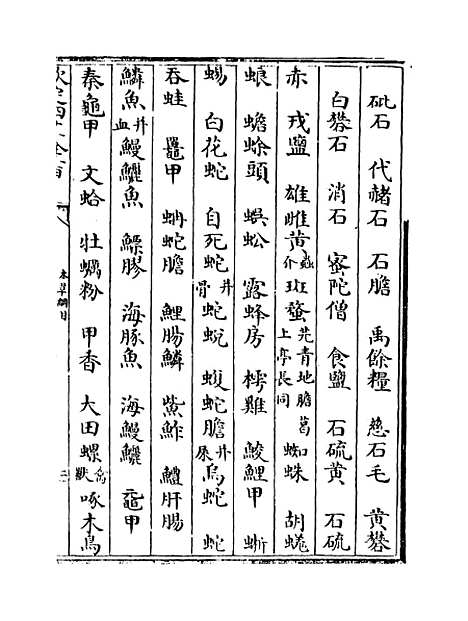 砒石 代赭石 石膽 禹餘糧 慈石毛 黃礬
白礬石 消石 蜜陀僧 食鹽 石硫黃 石硫
赤 戎鹽 雄雌黃 蟲介 斑蝥 芫青地膽葛上亭長同 蜘蛛 胡蜣
蜋 蟾蜍頭 蜈蚣 露蜂房 樗雞 鯪鯉甲 蜥
蜴 白花蛇 自死蛇 并骨 蛇蛻 蝮蛇膽 并屎 烏蛇 蛇
吞蛙 鼉甲 蚺蛇膽 鯉腸鱗 鮆鮓 鱧肝腸
鱗魚 并血 鰻鱺魚 鰾膠 海豚魚 海鰻鱺 黿甲
秦龜甲 文蛤 牡蠣粉 甲香 大田螺 禽獸 啄木鳥
本草綱目